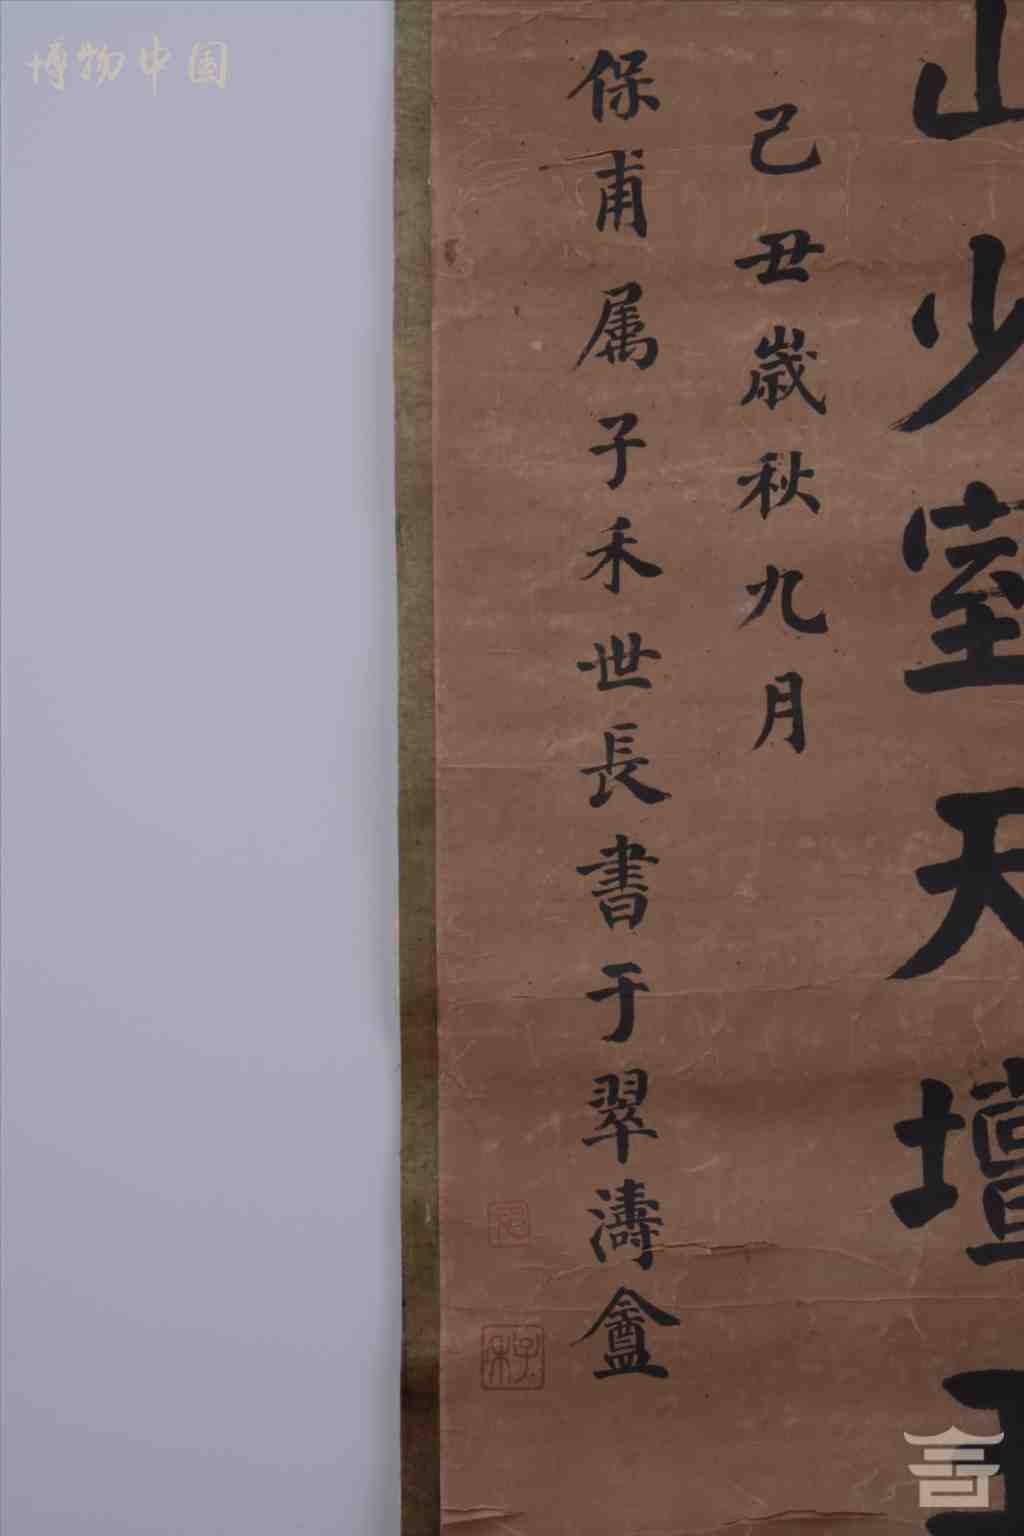 博物中国
山少室天壇王
己丑歲秋九月
保甫属子禾世長書于翠濤盦
子禾